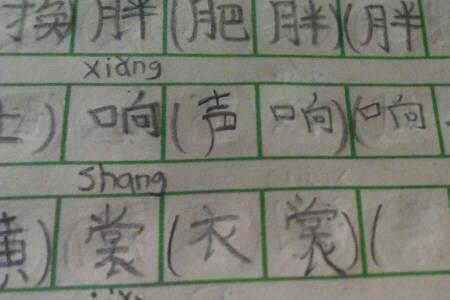 换 胖(肥胖)(胖
xiǎng
)响(声响)(响
shang
)裳(衣裳)(